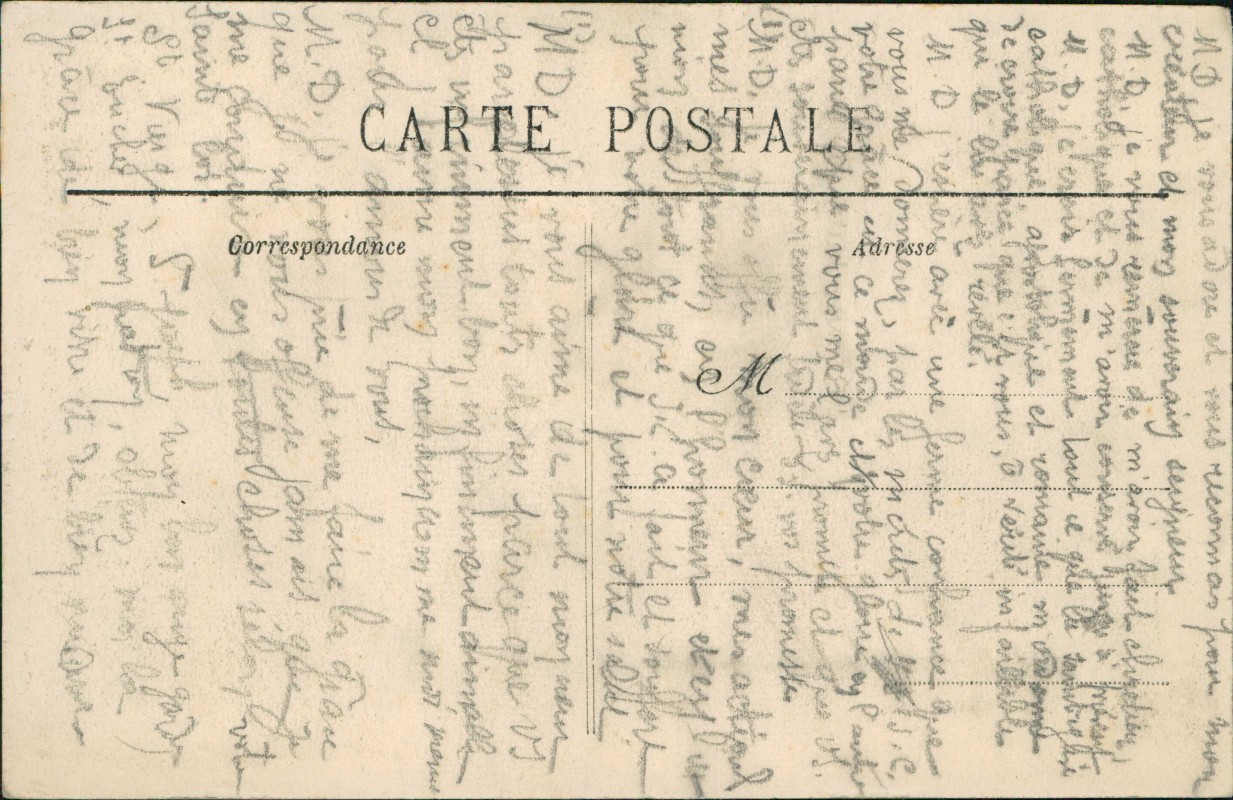 CARTE POSTALE
Correspondance
Adresse
M
M D je vous adore et vous reconnais pour mon
créateur et mon souverain seigneur
M. D. je vous remercie de m'avoir fait chrétien,
catholique et de m'avoir conservé jusqu'à présent
M. D. je crois fermement tout ce que la sainte église
catholique apostolique et romaine m'ordonne
de croire parce que c'est vous, ô vérité infaillible
qui le lui avez révélé.
M. D j'espère avec une ferme confiance que
vous me donnerez, par les mérites de J. C.
votre grâce en ce monde et votre gloire en l'autre
parce que vous me l'avez promis et que vs
êtes souverainement fidèle en vos promesses
M. D. je vous offre mon cœur, mes actions
mes souffrances en l'honneur
tout ce que J.C. a fait et souffert
pour votre gloire et pour notre salut
M D je vous aime de tout mon cœur
par dessus toutes choses parce que vs
êtes infiniment bon, infiniment aimable
et j'aime mon prochain comme moi même
pour l'amour de vous,
M. D. je vous prie de me faire la grâce
que je ne vous offense jamais, que je
me conduise en toutes choses selon votre
sainte loi.
St Vierge, St Joseph mon bon ange gardien
St Eucher, mon patron, obtenez moi la
grâce de bien vivre et de bien